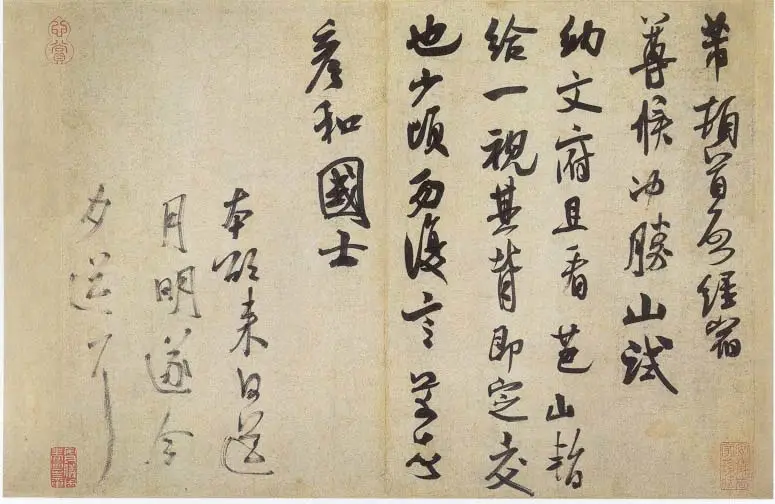 芾頓首啓經宿
尊候冲勝山試
納文府且看芭山暫
給一視其背即定交
也少頃勿復言芾頓首
彥和國士
本欲來日送
月明遂今
夕送耳
心賞